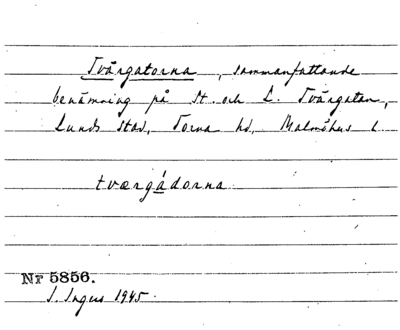 Tvärgatorna, sammanfattande
benämning på St. och L. Tvärgatan,
Lunds stad, Torna hd, Malmöhus l.
tværgádorna
Nr 5856.
I. Ingers 1945.